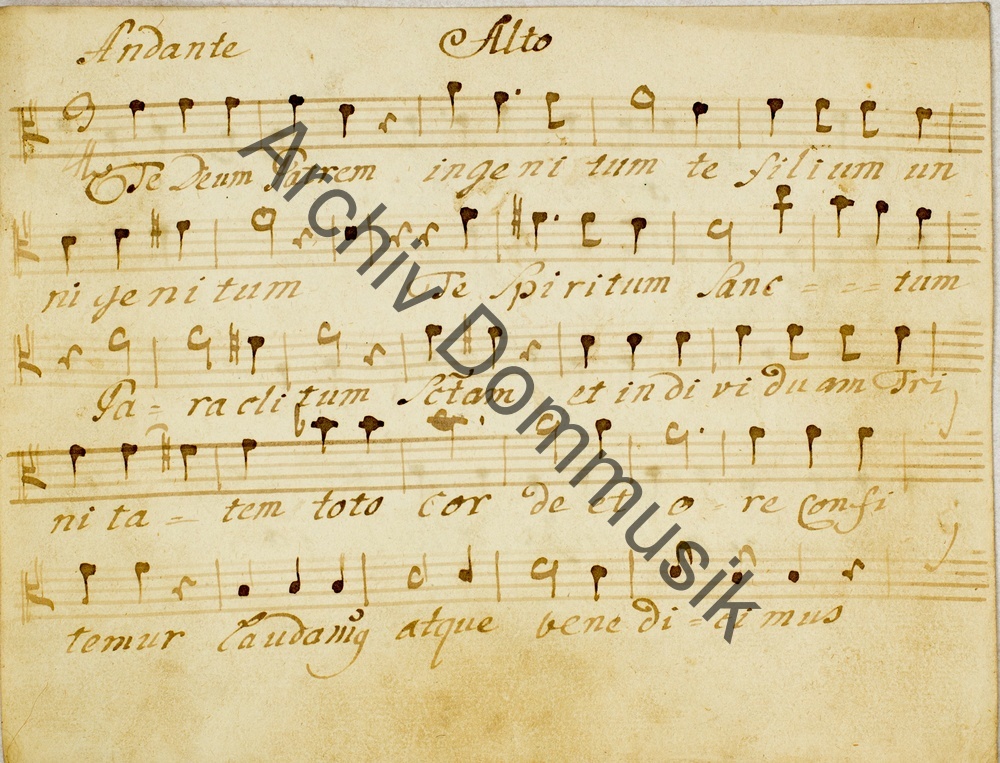 Andante Alto
Te Deum Patrem ingenitum te filium un
ni genitum Te Spiritum Sanc - - - tum
Pa - racli tum Sctam et individuam Tri
ni ta - tem toto cor de et o - re Confi
temur laudamq atque bene di - ci mus
Archiv Dommusik